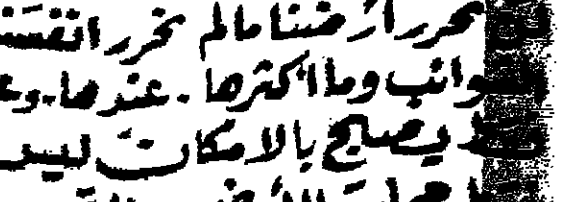 نحرر أرضنا مالم نحرر انفسنا
الشوائب وما أكثرها . عندها . وعـ
فقط يصبح بالامكان ليس